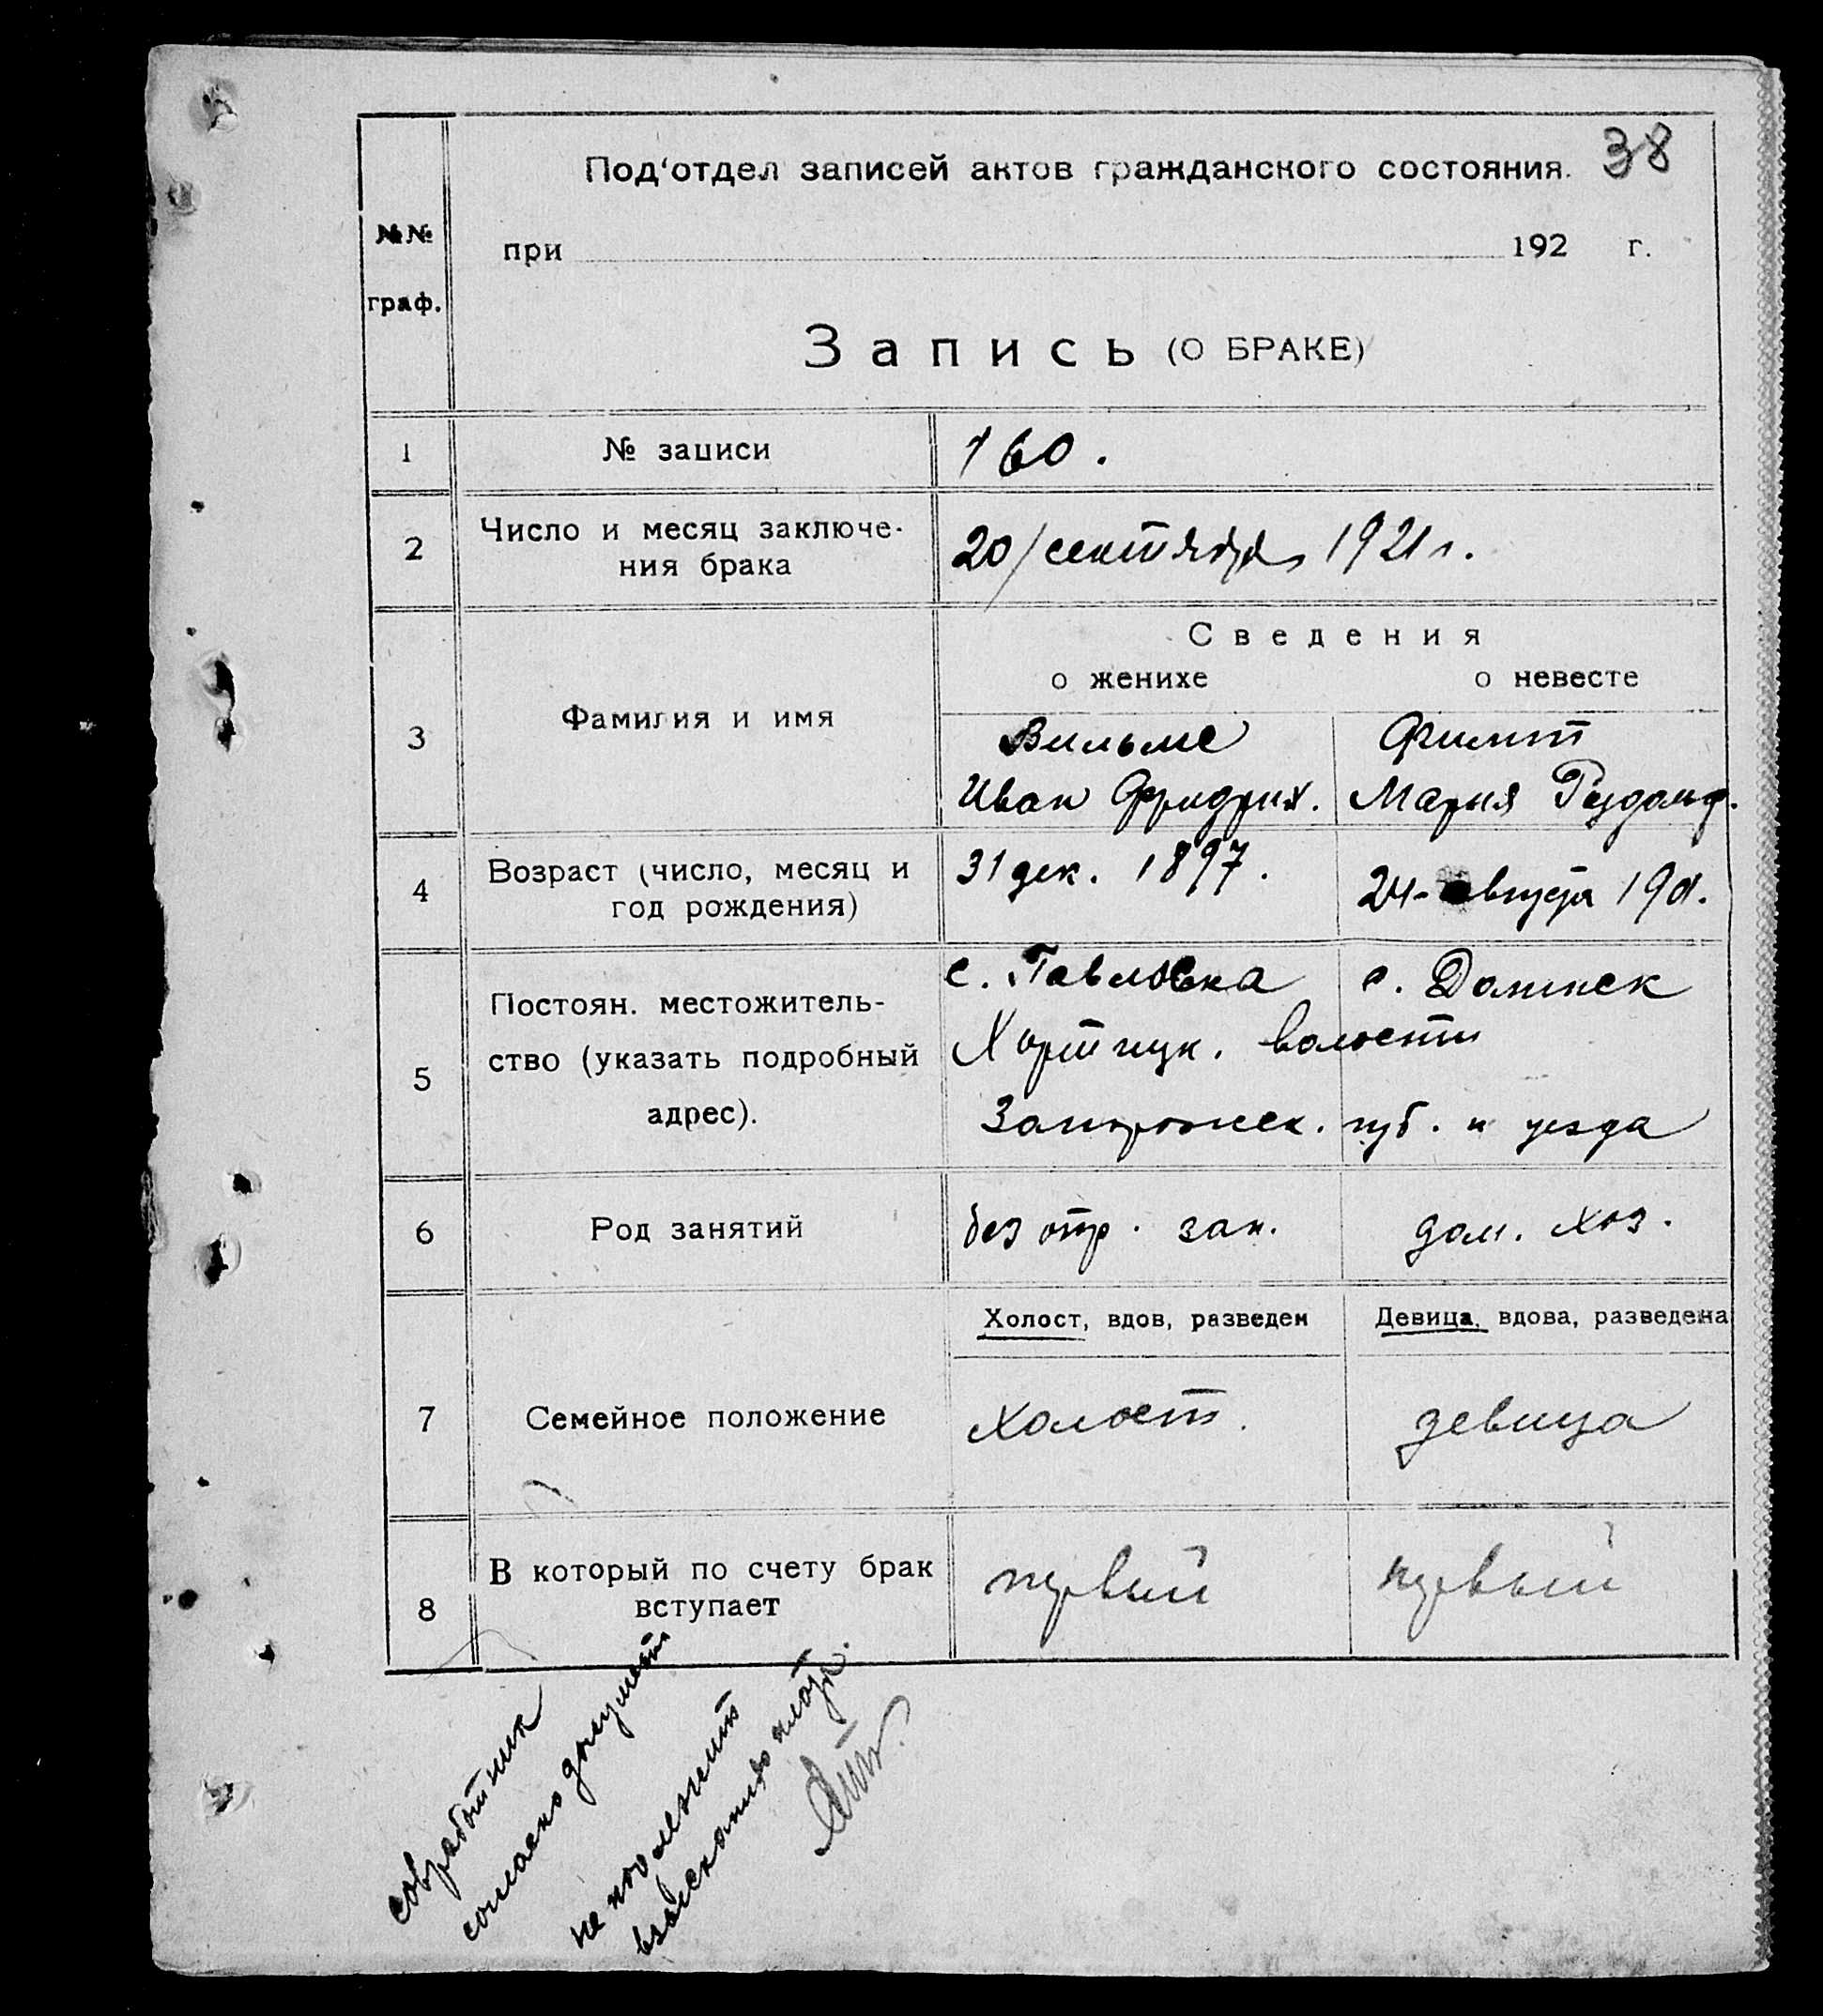 38
Под'отдел записей актов гражданского состояния.
№№
граф.
при 192 г.
Запись (О БРАКЕ)
1 № записи 160.
2 Число и месяц заключе-
ния брака 20/сентября 1921 г.
Сведения
о женихе о невесте
3 Фамилия и имя
Вильмс
Иван Фридрих. Мария Рудольф.
4 Возраст (число, месяц и
год рождения)
31 дек. 1897. 24-августа 1901.
5 Постоян. местожитель-
ство (указать подробный
адрес).
с. Павловка с. Долинск
Хортицк. волости
Запорожск. губ. и уезда
6 Род занятий без опр. зан. дом. хоз.
Холост, вдов, разведен Девица, вдова, разведена
7 Семейное положение холост. девица
8 В который по счету брак
вступает
первый первый
совработник
согласно документ
не подлежит
взысканию